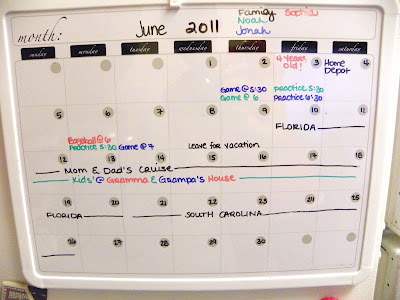 Family Sophia
Noah
Jonah
month: June 2011
sunday monday tuesday wednesday thursday friday saturday
1 2 3 4
4 years old!
Home Depot
Game @ 5:30
Game @ 6
Practice 5:30
Practice 6:30
5 6 7 8 9 10 11
FLORIDA
Baseball @ 6
Practice 5:30 Game @ 7
Leave for vacation
12 13 14 15 16 17 18
Mom & Dad's Cruise
Kids' @ Gramma & Grampa's House
19 20 21 22 23 24 25
FLORIDA SOUTH CAROLINA
26 27 28 29 30